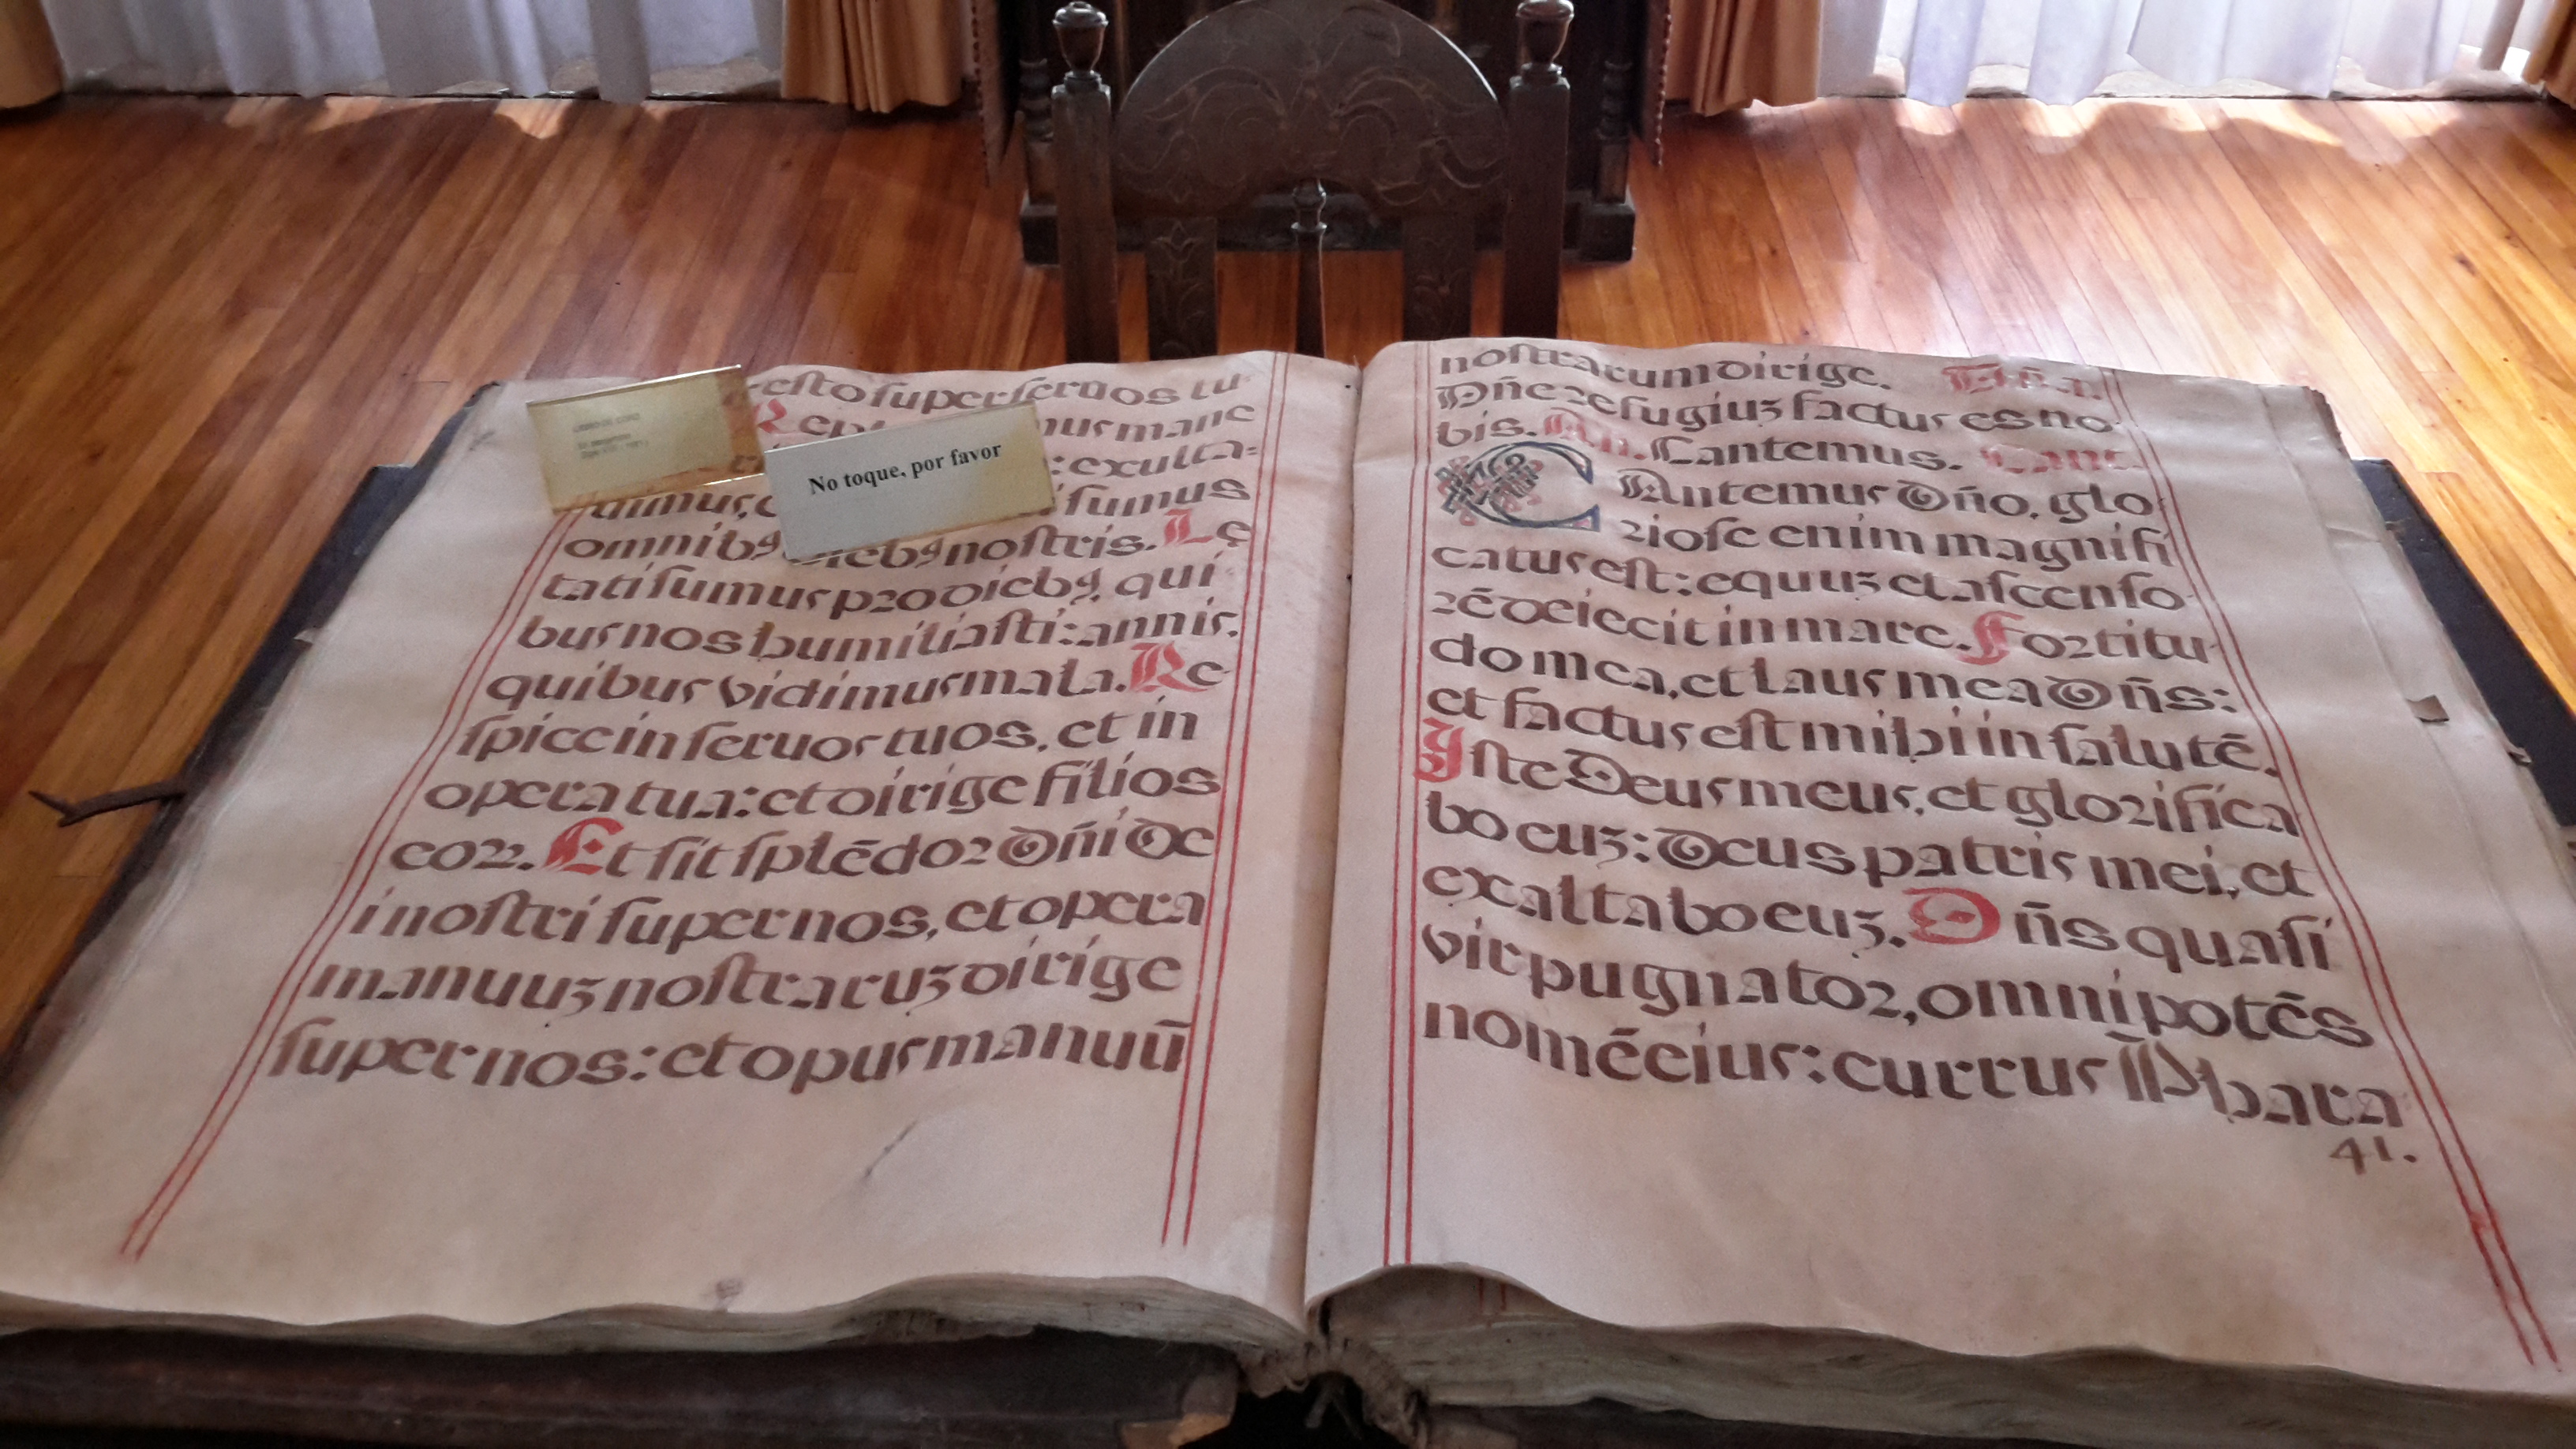 esto super seruos tu
R mus mane
: exulta=
sumus
omnibꝰ diebꝰ nostris. Le
tati sumus pro diebꝰ, qui
bus nos humiliasti: annis,
quibus vidimus mala. Re
spice in seruos tuos, et in
opera tua: et dirige filios
eoꝝ. Et sit splēdor Dñi De
i nostri super nos, et opera
manuuz nostraruz dirige
super nos: et opus manuū
No toque, por favor
nostrarum dirige.
Dñe refugiuz factus es no
bis. An. Cantemus. Cant.
CAntemus Dño, glo
riose enim magnifi
catus est: equuz et ascenso
rē deiecit in mare. Fortitu
do mea, et laus mea Dñs:
et factus est mihi in salutē.
Iste Deus meus, et glorifica
bo euz: Deus patris mei, et
exaltabo euz. Dñs quasi
vir pugnator, omnipotēs
nomē eius: currus Phara
41.